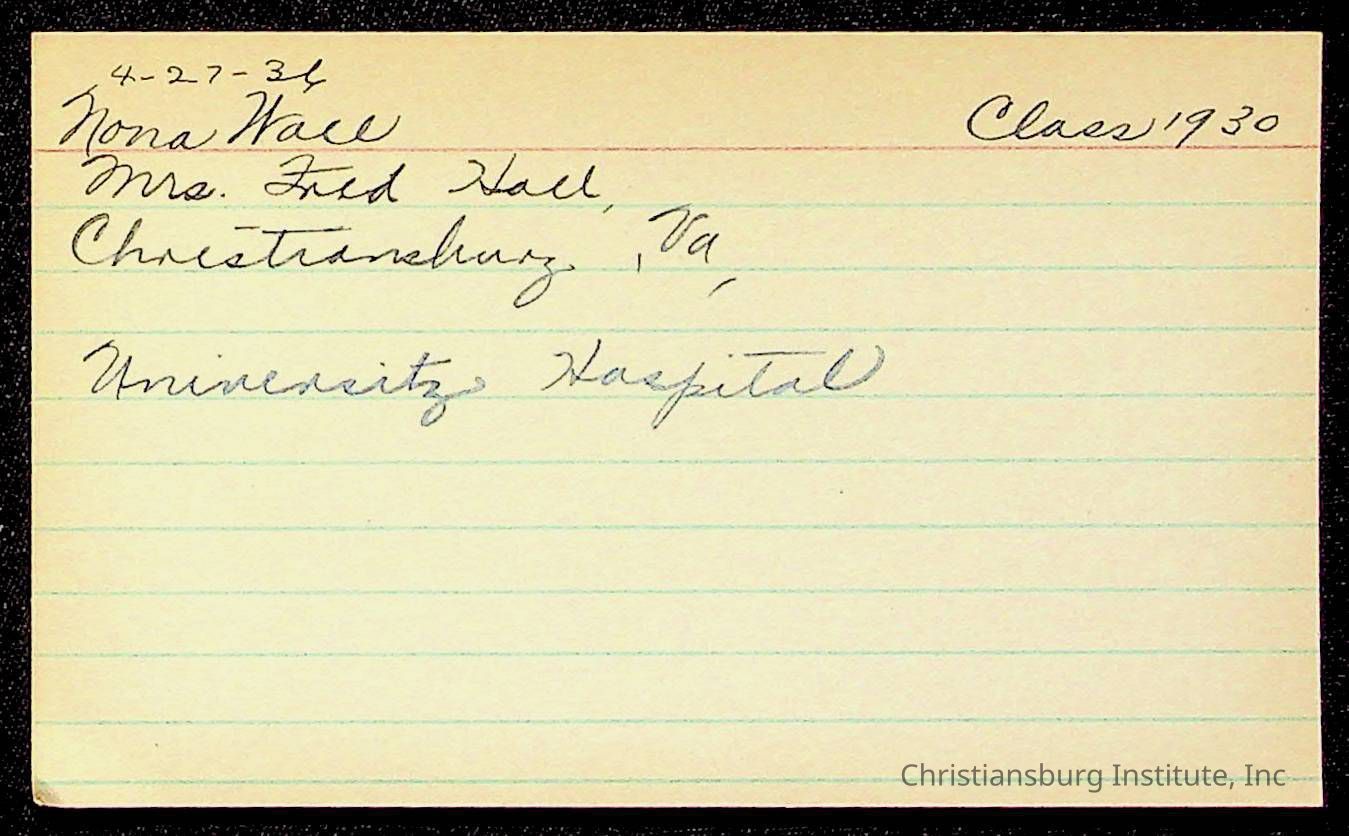 4-27-36
Nona Wall
Class 1930
Mrs. Fred Hall,
Christiansburg, Va,
University Hospital
Christiansburg Institute, Inc